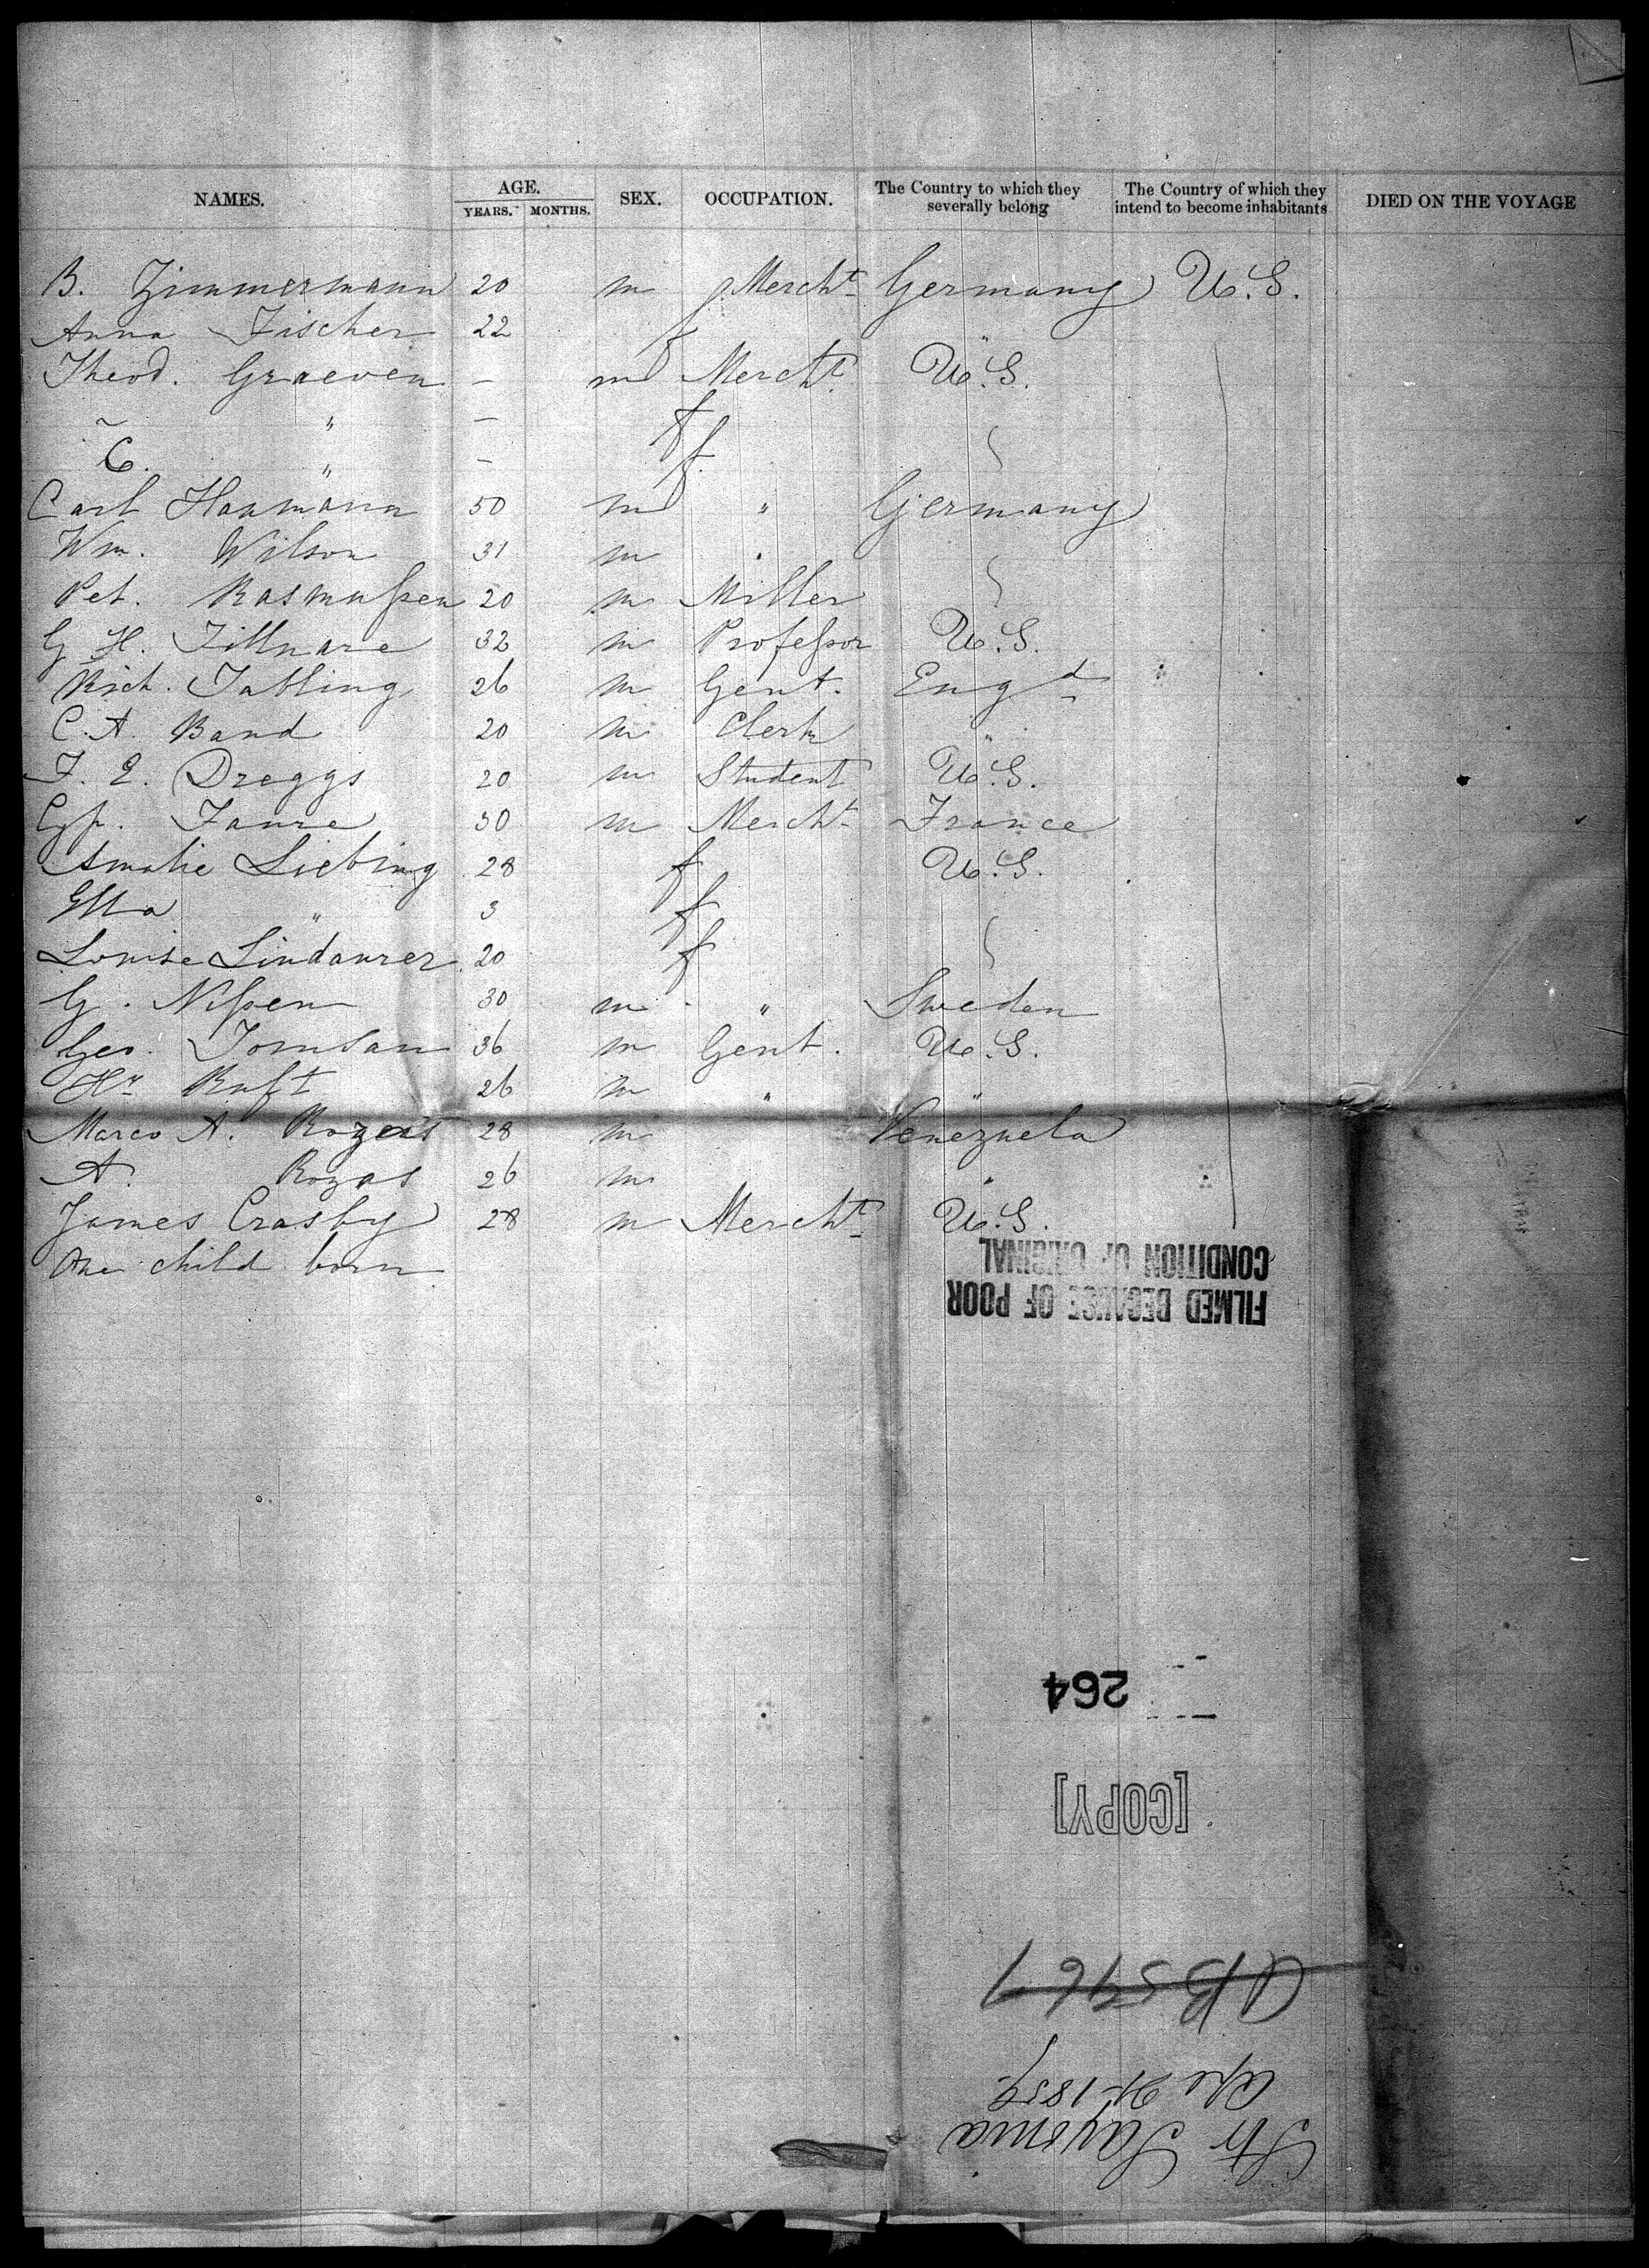 NAMES. AGE. YEARS. MONTHS. SEX. OCCUPATION. The Country to which they severally belong The Country of which they intend to become inhabitants DIED ON THE VOYAGE
B. Zimmermann 20 m Mercht Germany U.S.
Anna Fischer 22 f "
Theod. Graeven – m Mercht U.S.
" – f
C. " – f
Carl Haxmann 50 m " Germany
Wm. Wilson 31 m "
Pet. Rasmussen 20 m Miller
G H. Fillmare 32 m Professor U.S.
Rich. Tabling 26 m Gent. Engd
C. A. Band 20 m Clerk "
F. E. Dreggs 20 m Student U.S.
Faure 30 m Mercht France
Amalie Liebing 28 f U.S.
Ella " 3 f
Louise Lindaurer 20 f
G. Nissen 30 m " Sweden
Geo. Tomsan 36 m Gent. U.S.
Hy Ruft 26 m " "
Marco A. Rozas 28 m Venezuela
A. Rozas 26 m "
James Crasby 28 m Mercht U.S.
One child born
FILMED BECAUSE OF POOR
CONDITION OF ORIGINAL
264
[COPY]
Str Saxonia
1859